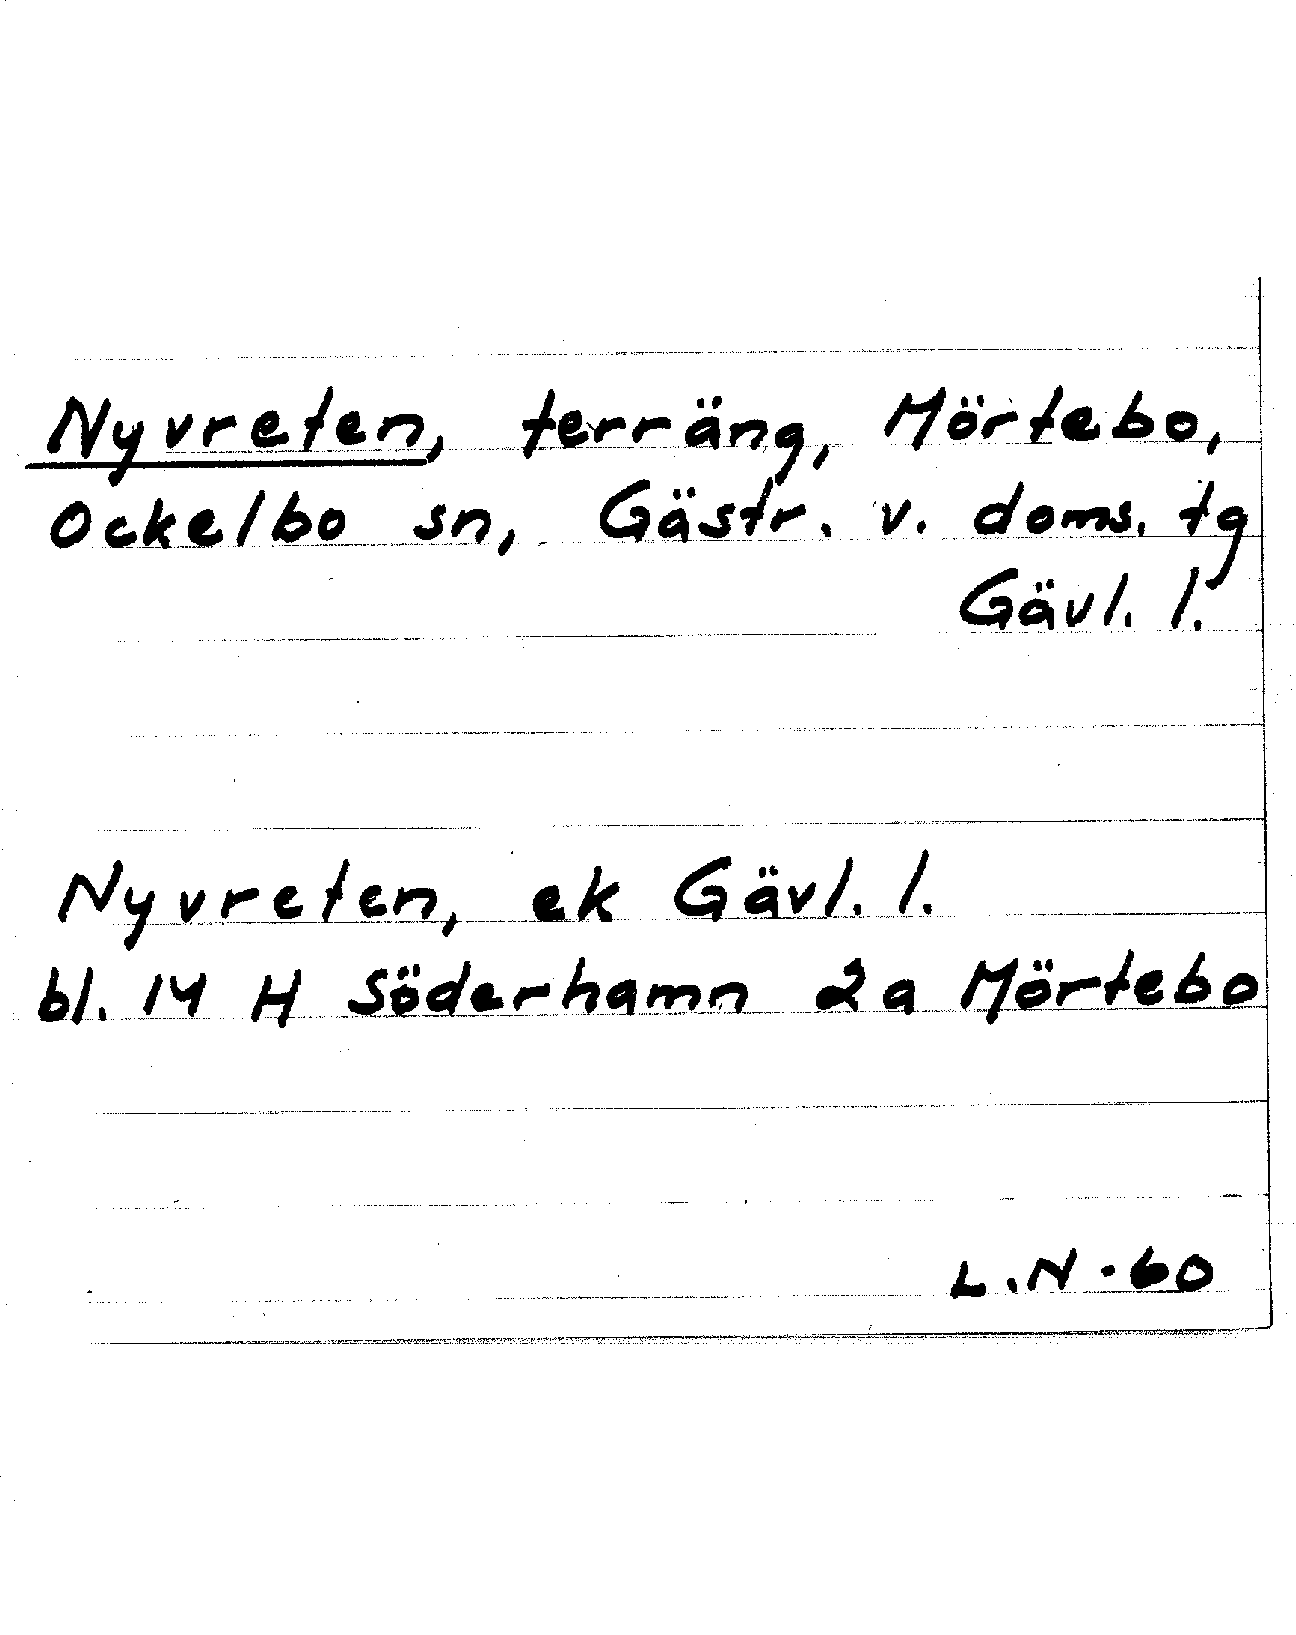 Nyvreten, terräng, Mörtebo,
Ockelbo sn, Gästr. v. doms. tg
Gävl. l.
Nyvreten, ek Gävl. l.
bl. 14 H Söderhamn 2a Mörtebo
L.N. 60